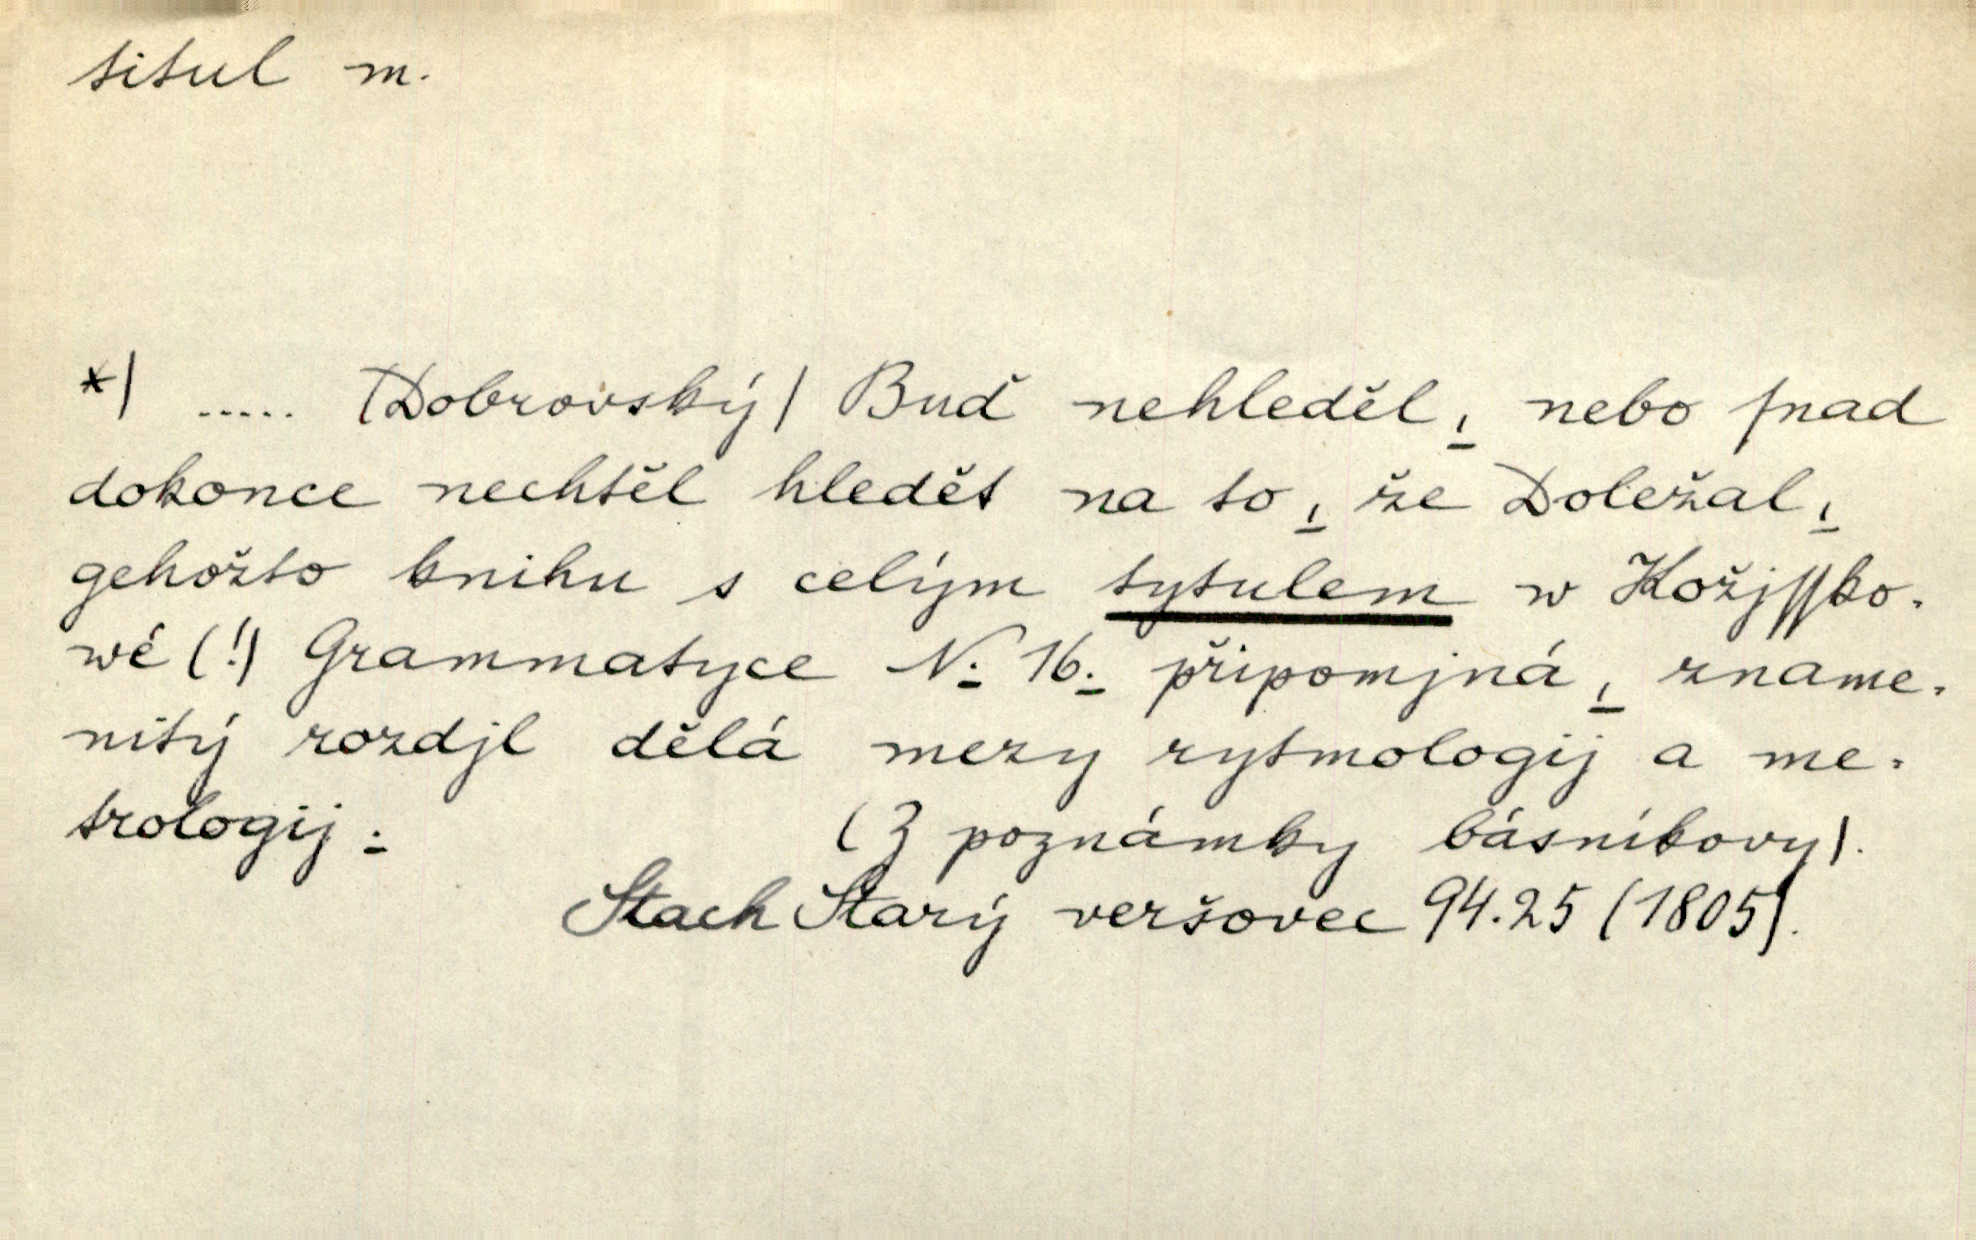 titul m.
*) ..... (Dobrovský) Buď nehleděl, nebo ſnad
dokonce nechtěl hledět na to, že Doležal,
gehožto knihu s celým tytulem w Kožjſſko-
wé (!) Grammatyce N. 16. připomjná, zname-
nitý rozdjl dělá mezy rytmologij a me-
trologij.
(Z poznámky básníkovy).
Stach Starý veršovec 94.25 (1805).